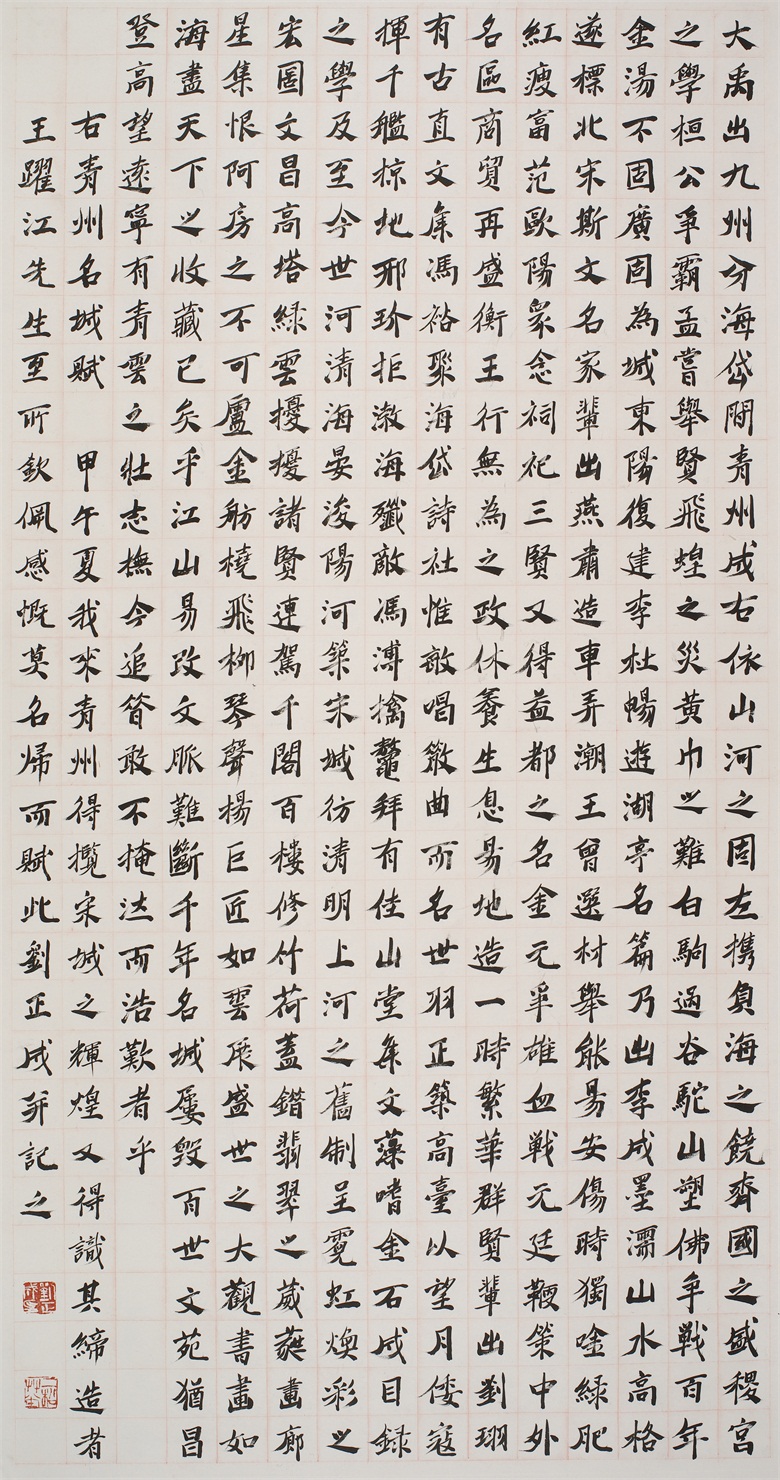 大禹出九州分海岱間青州成右依山河之固左携負海之饒齊國之盛稷宮
之學桓公爭霸孟嘗舉賢飛蝗之災黃巾之難白駒過谷駝山塑佛爭戰百年
金湯不固廣固為城東陽復建李杜暢遊湖亭名篇乃出李成墨濡山水高格
遂標北宋斯文名家輩出燕肅造車弄潮王曾選材舉能易安傷時獨唫綠肥
紅瘦富范歐陽眾念祠祀三賢又得益都之名金元爭雄血戰元廷鞭策中外
名區商貿再盛衡王行無為之政休養生息易地造一時繁華群賢輩出劉珝
有古直文集馮裕聚海岱詩社惟敏唱散曲而名世羽正築高臺以望月倭寇
揮千艦掠地邢玠拒激海殲敵馮溥擒鼇拜有佳山堂集文藻嗜金石成目録
之學及至今世河清海晏浚陽河築宋城彷清明上河之舊制呈霓虹煥彩之
宏圖文昌高塔綠雲擾擾諸賢連駕千閣百樓修竹荷蓋錯翡翠之葳蕤畫廊
星集恨阿房之不可盧金舫橈飛柳琴聲楊巨匠如雲展盛世之大觀書畫如
海盡天下之收藏已矣乎江山易改文脈難斷千年名城屢毀百世文苑猶昌
登高望遠寧有青雲之壯志撫今追昔敢不掩而浩歎者乎
右青州名城賦 甲午夏我來青州得攬宋城之輝煌又得識其締造者
王躍江先生至所欽佩感慨莫名歸而賦此劉正成并記之